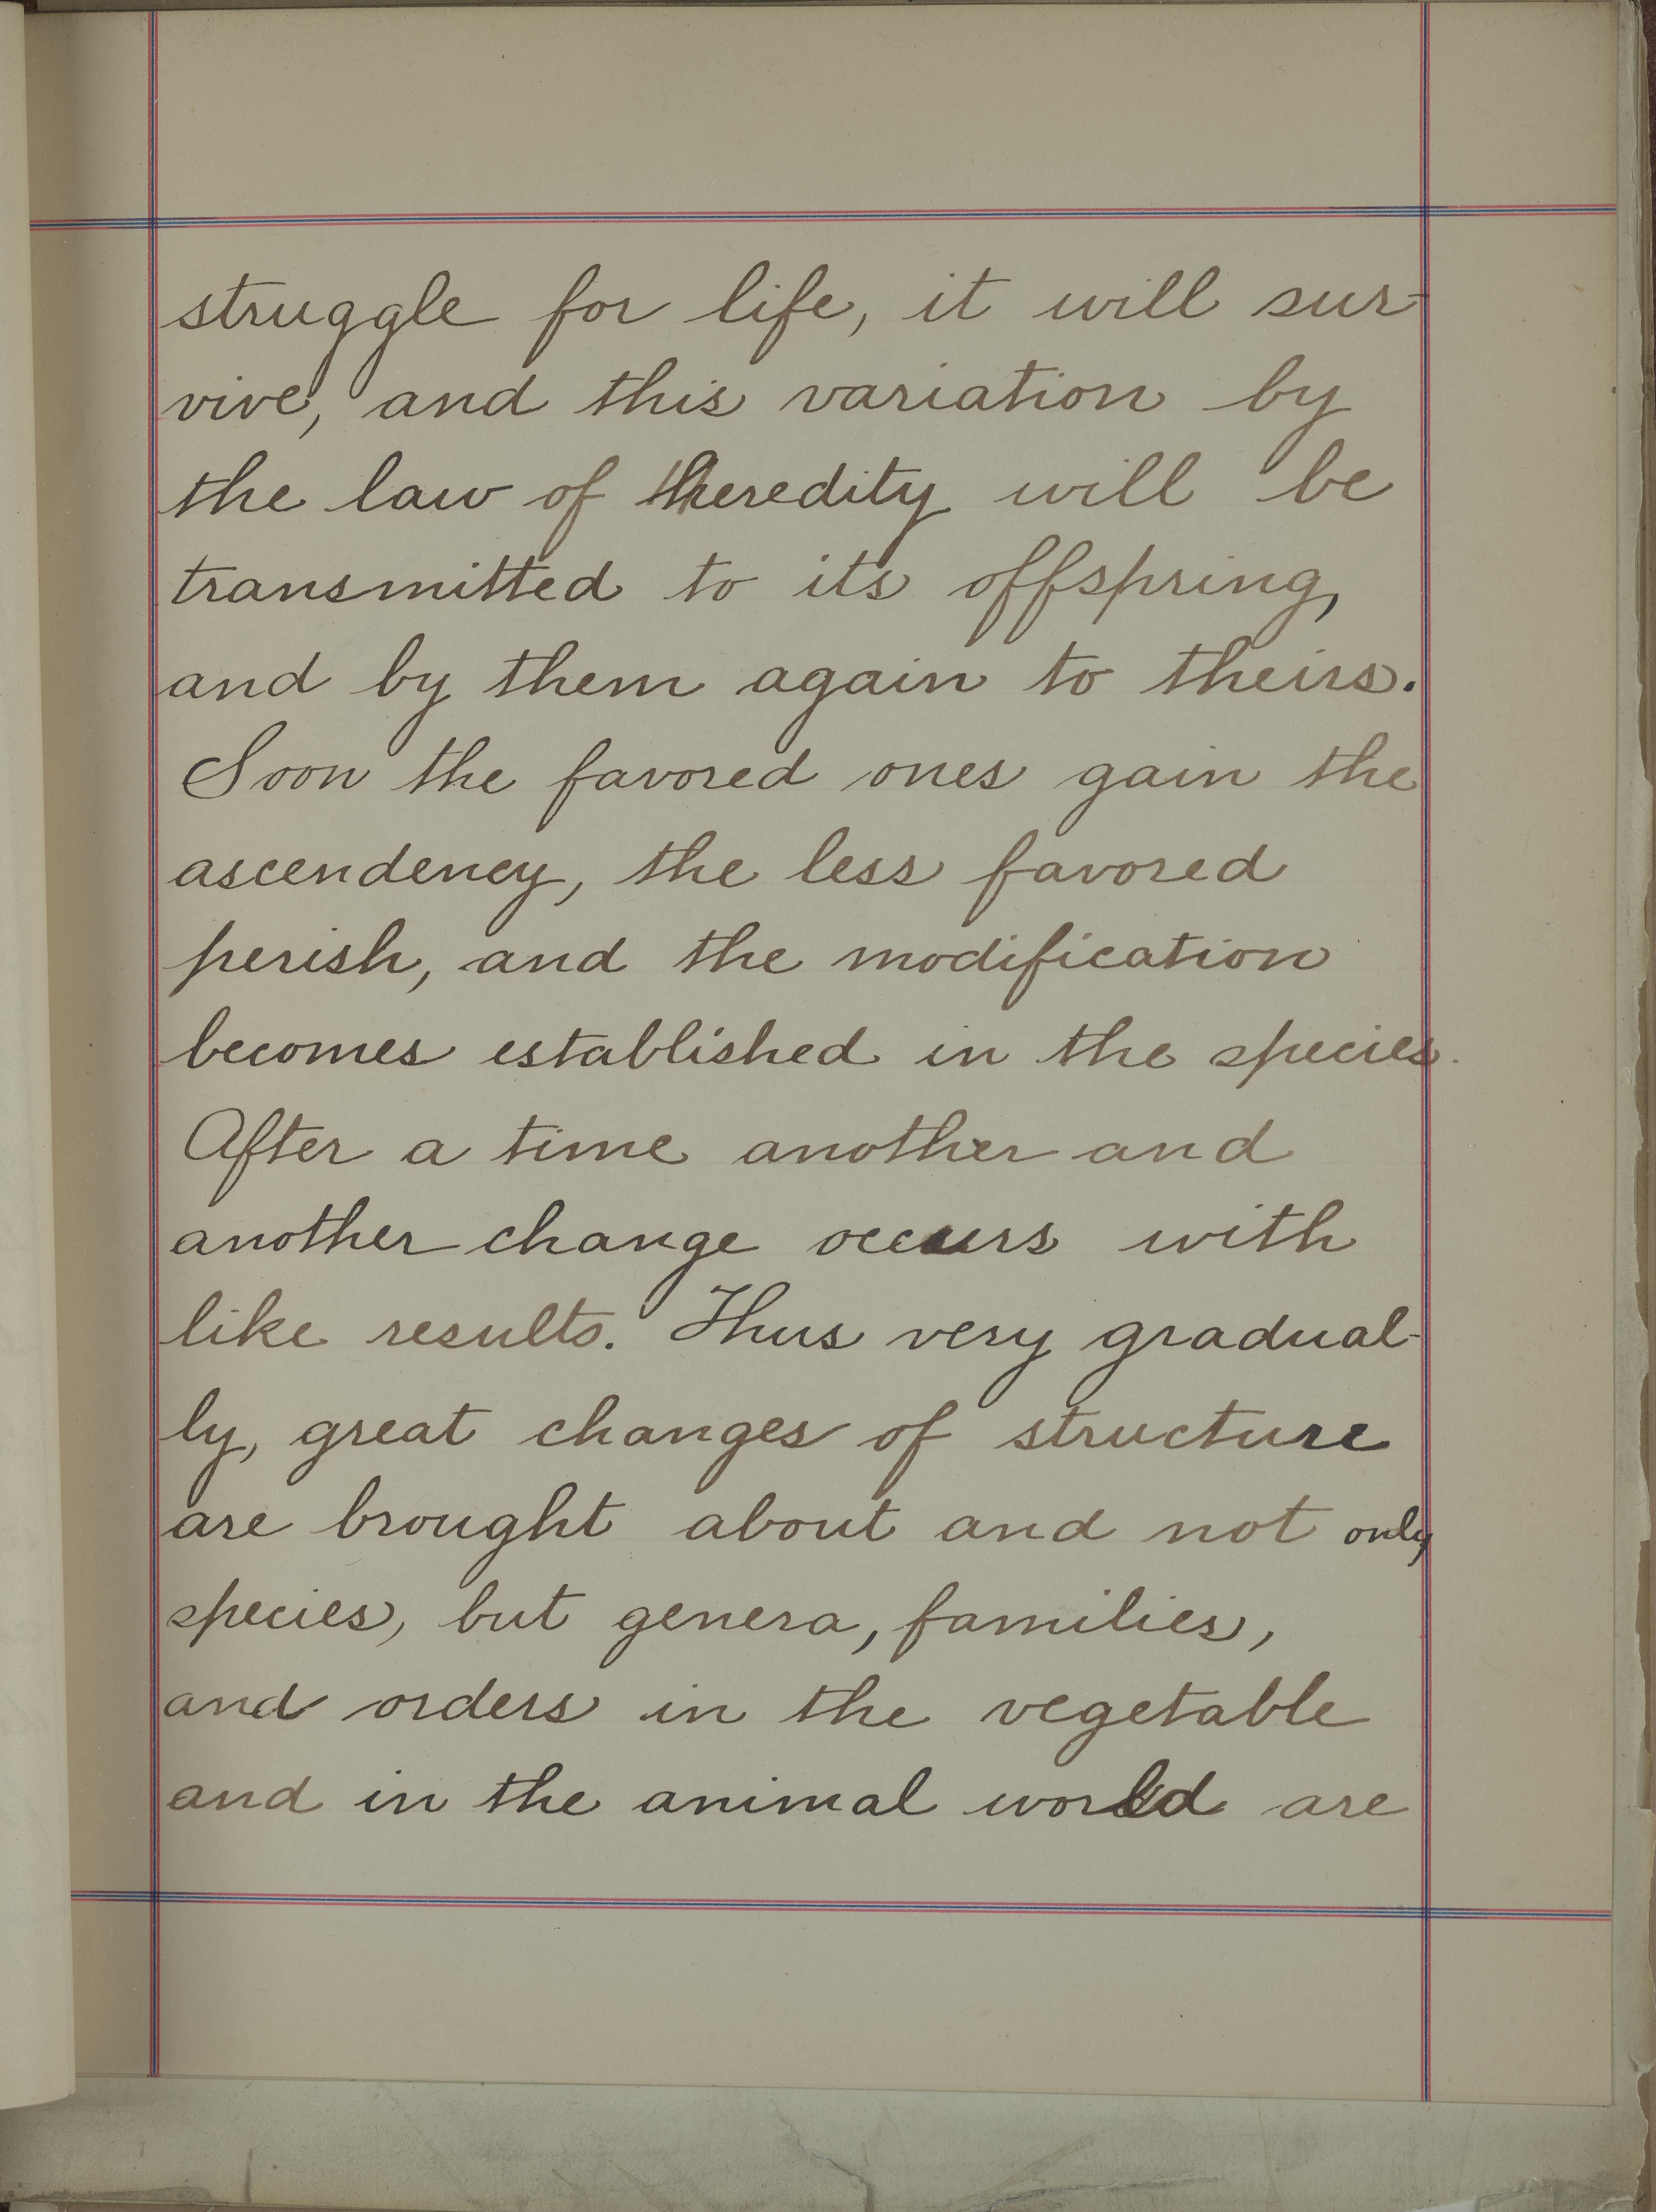 struggle for life, it will sur-
vive, and this variation by
the law of heredity will be
transmitted to its offspring,
and by them again to theirs.
Soon the favored ones gain the
ascendency, the less favored
perish, and the modification
becomes established in the species.
After a time another and
another change occurs with
like results. Thus very gradual-
ly, great changes of structure
are brought about and not only
species, but genera, families,
and orders in the vegetable
and in the animal world are